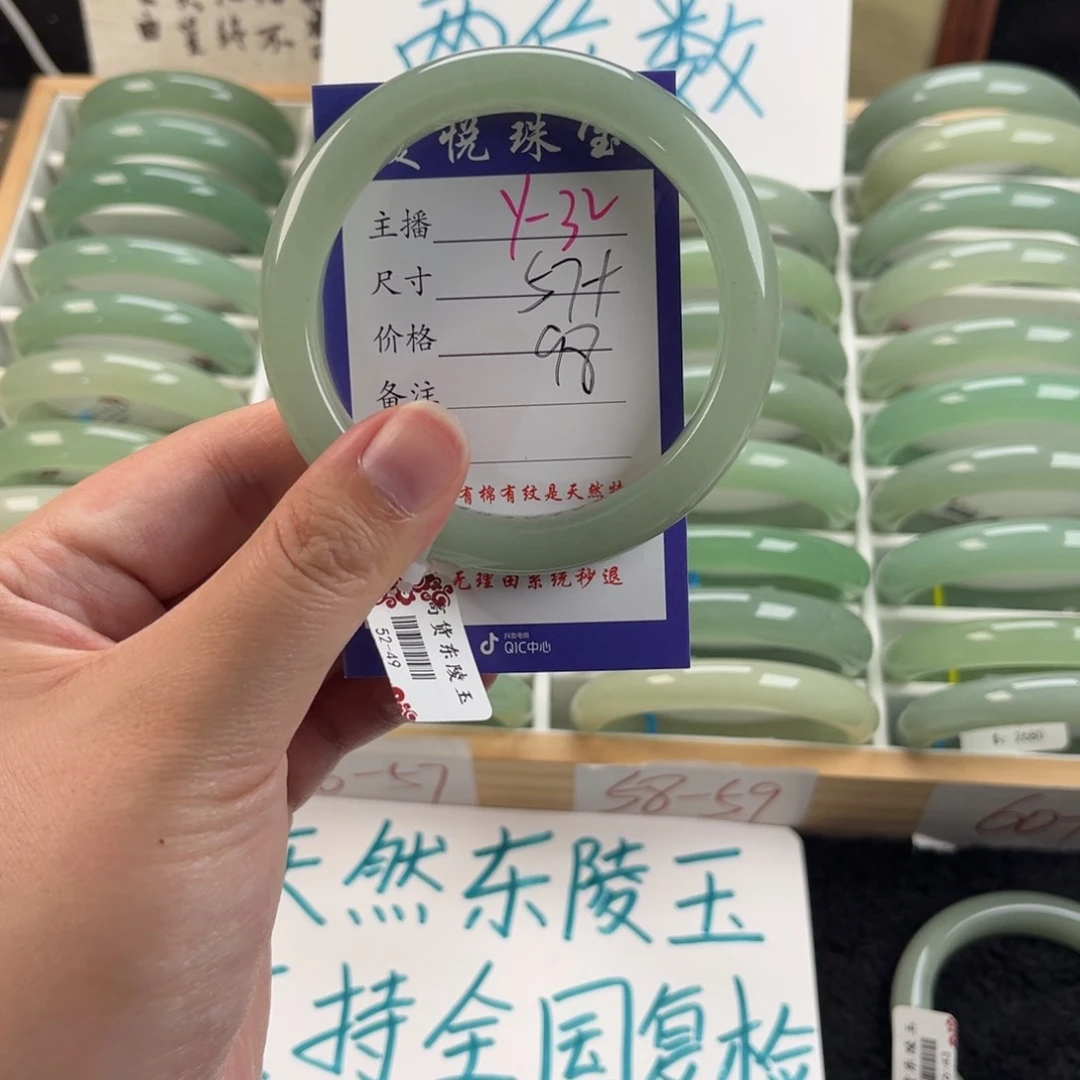 两位数
悦珠宝
主播 Y-32
尺寸 57+
价格 98
备注
有棉有纹是天然
无理由系统秒退
抖音电商
QIC中心
高货东陵玉
52-49
-57
58-59
60
天然东陵玉
持全国复检